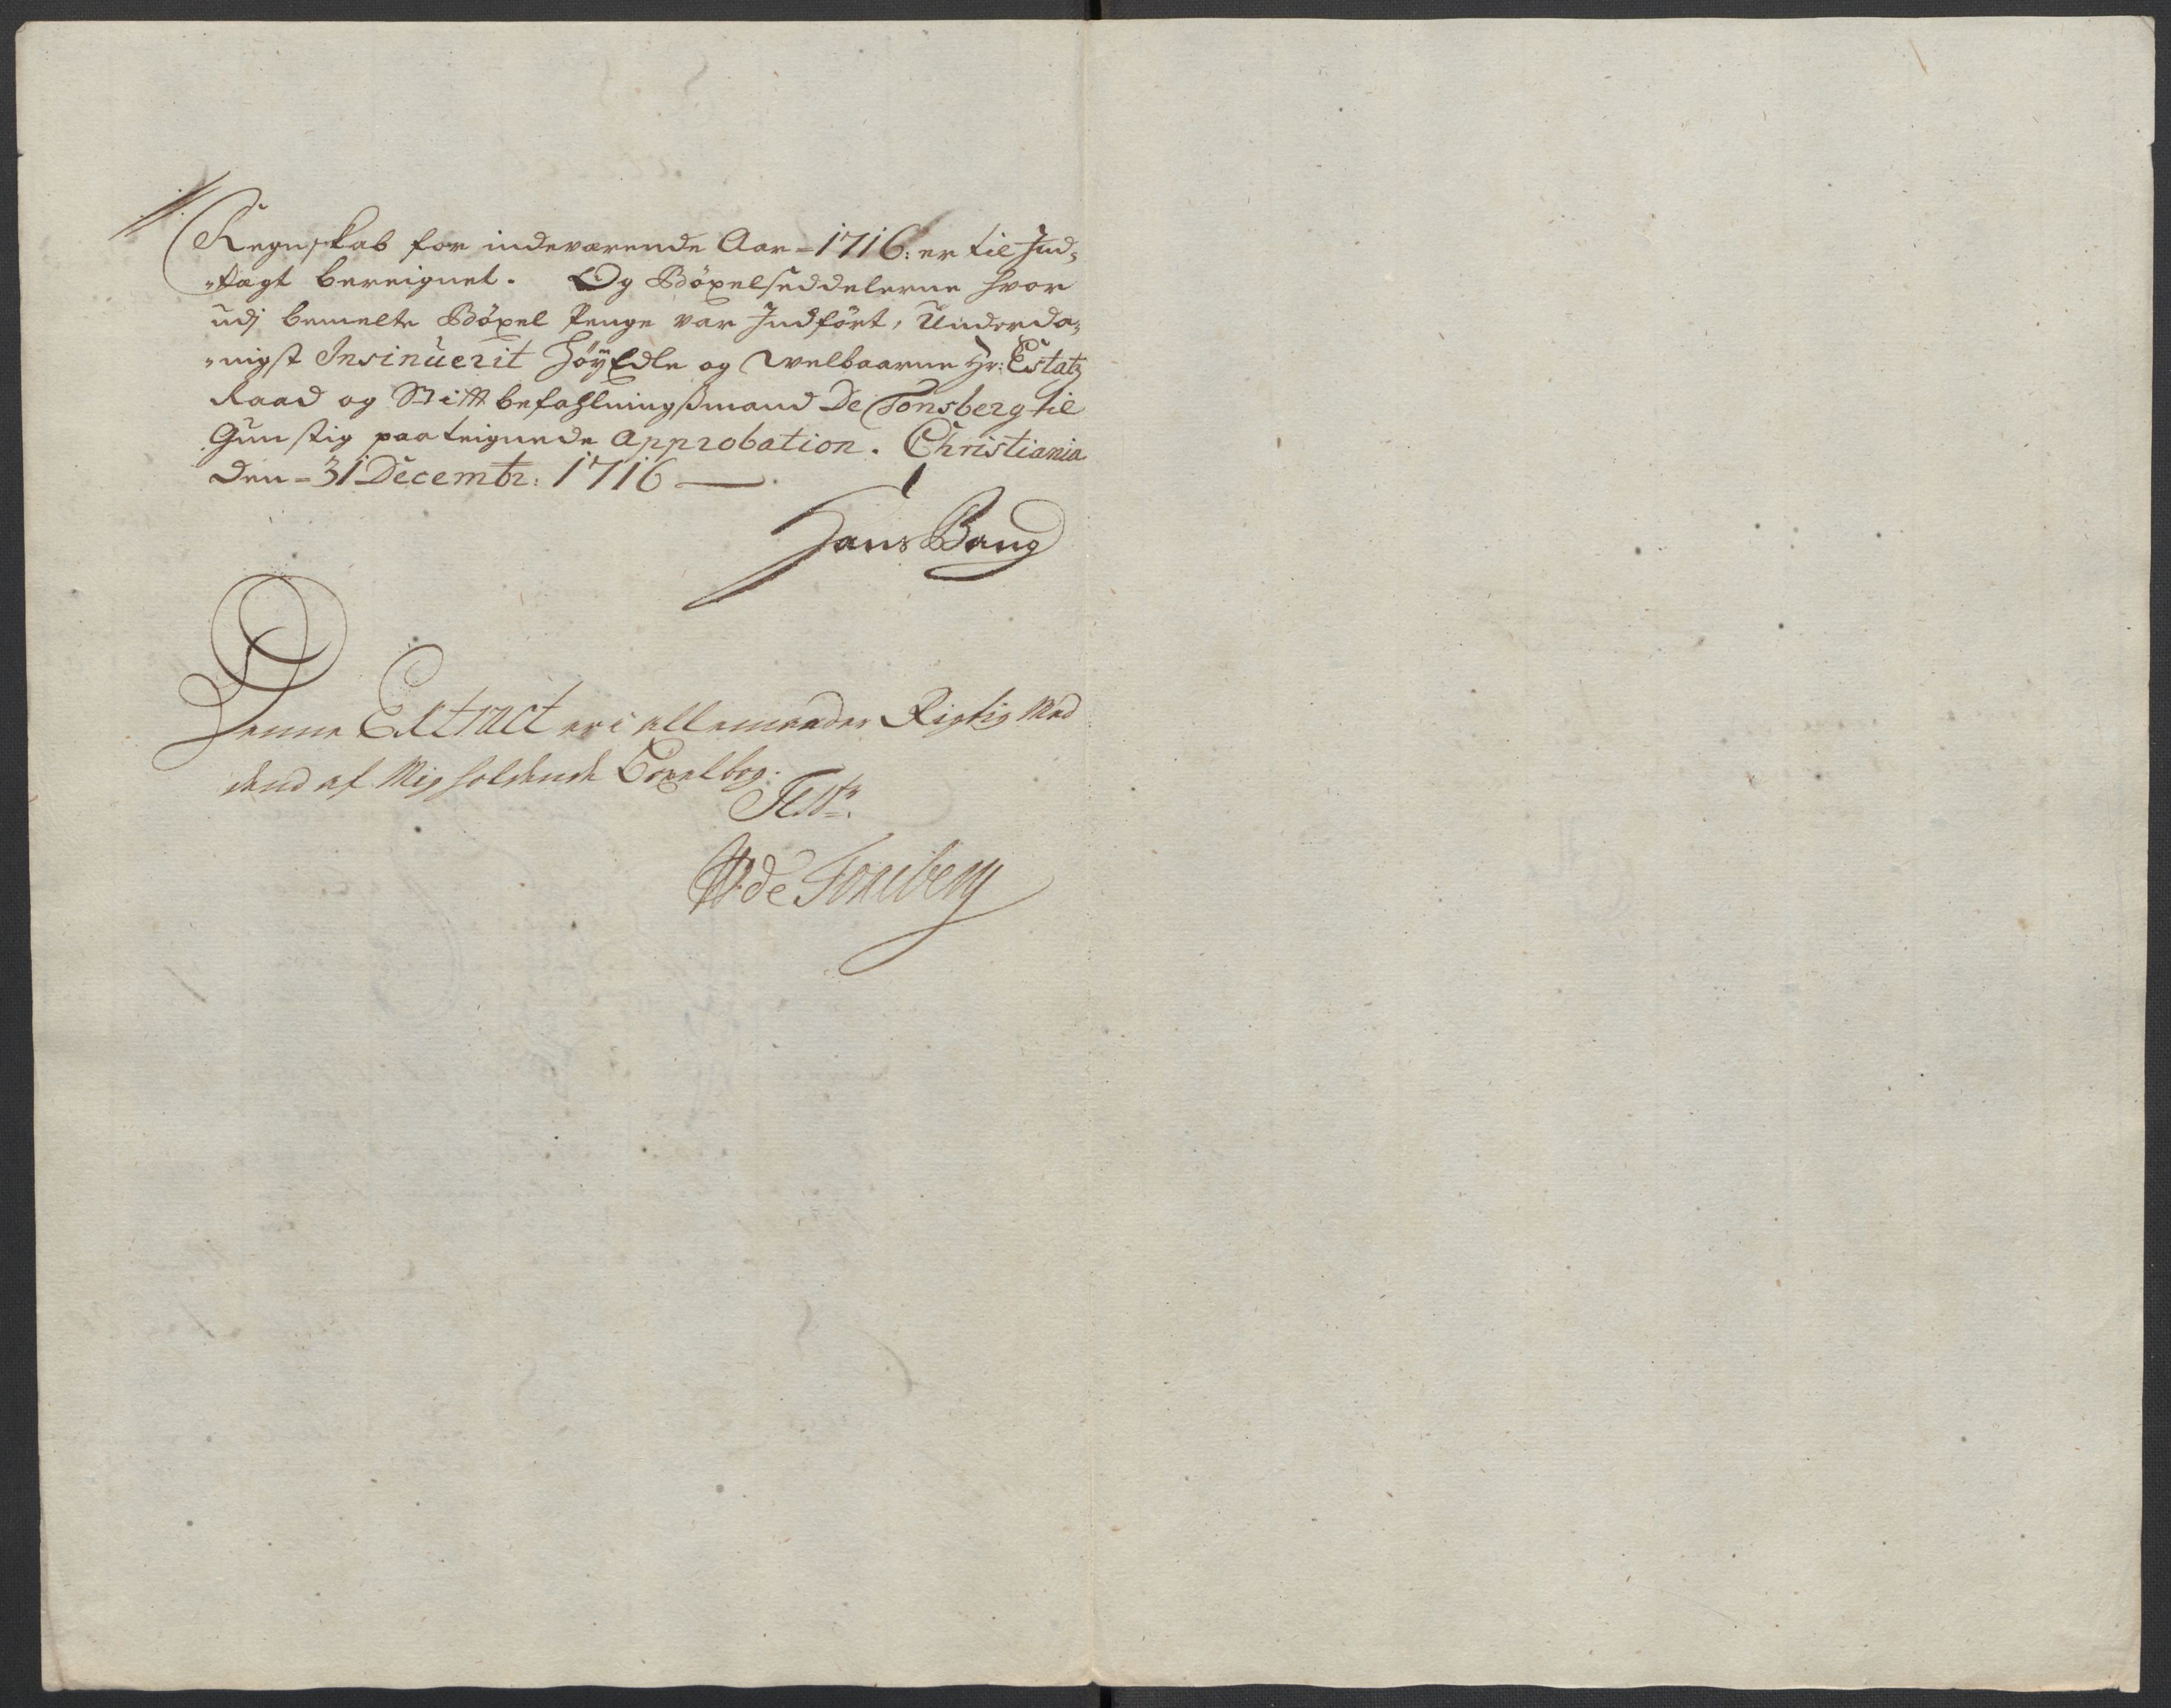 Regnskab for indeværende Aar - 1716: er til Ind-
„tægt bereignet. Og Böxelseddelerne hvor
udj bemelte Böxel Penge var Indfört, Underda-
„nigst Insinuerit Höÿ Edle og Welbaarne Hr: Estatz
Raad og Stiftbefahlningsmand De Tonsberg til
Gunstig paateignede Approbation. Christiania
den - 31 Decembr: 1716 —
Hans Bang
Denne Extract er i alle maader Rigtig Med
dend af Mig holdende Böxelbog.
Test.
W de Tonsberg